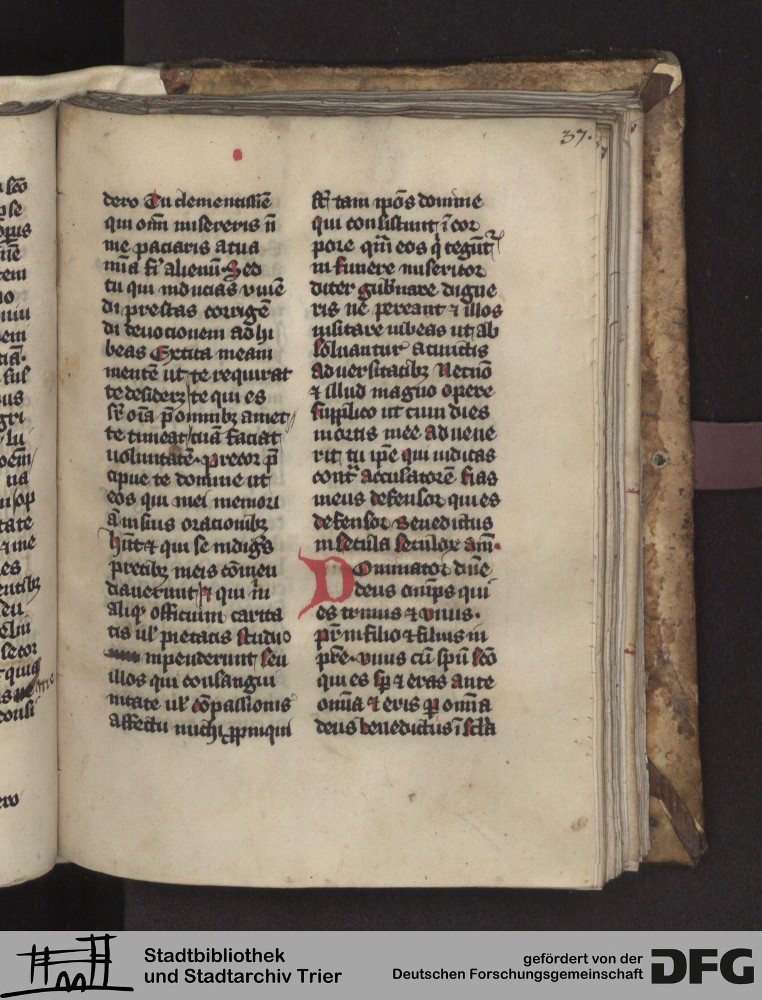 37.
dero Tu clementissīe
qui om̄i misereris n̄
me paciaris a tua
mīa fī alienū. Sed
tu qui inducias viuē
di prestas corrigē
di deuocionem adhi
beas Excita meam
mentē ut te requirat
te desiderꝫ te qui es
sꝑ oīa p̄ omnibꝫ amet
te timeat tuā faciat
uoluntatē. precor p̄
cipue te domine ut
eos qui mei memori
ā in suis oracionibꝫ
hn̄t et qui se indigīs
precibꝫ meis cōmen
dauerunt et qui in
aliqͦ officium carita
tis ul' pietatis studio
inpenderunt seu
illos qui consangui
nitate ul' cōpassionis
affectu michi ꝓpinqui
sūt tam ip̄os domine
qui consistunt ī cor
pore qm̄ eos q̄ tegūt
in funere misericor
diter gub̄nare digne
ris ne pereant ⁊ illos
uisitare iubeas ut ab
soluantur a cunctis
aduersitatibꝫ Necnō
⁊ illud magno opere
supplico ut cum dies
mortis mee aduene
rit tu ip̄e qui iudicas
contͣ accusatorē fias
meus defensor qui es
defensor Benedictus
in secula seculoꝝ am̄.
Dominator dn̄e
deus om̄ps qui
es trinus ⁊ vnus.
pr̄ in filio ⁊ filius in
pr̄e. vnus cū spū sc̄o
qui es sꝑ ⁊ eras ante
omīa ⁊ eris ꝑ omīa
deus benedictus ī sc̄la
Stadtbibliothek
und Stadtarchiv Trier
gefördert von der
Deutschen Forschungsgemeinschaft
DFG